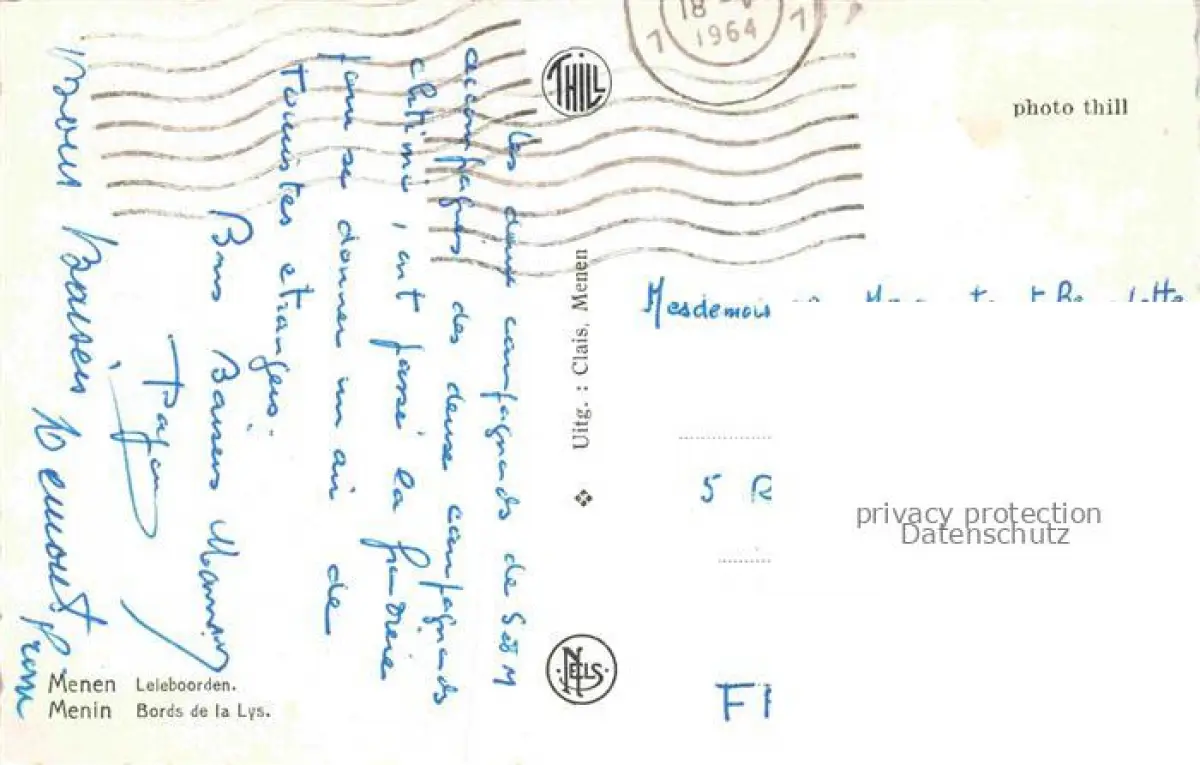 Les deux campagnards de S et M
accompagnés des deux campagnards
chtimi, ont passé la frontière
pour se donner un air de
Touristes étrangers.
Bons Baisers Maman
Papa
Bons Baisers
18
1964
7
7
THILL
photo thill
Uitg. : Clais, Menen
NELS
Mesdemois
5 R
privacy protection
Datenschutz
Menen Leieboorden.
Menin Bords de la Lys.